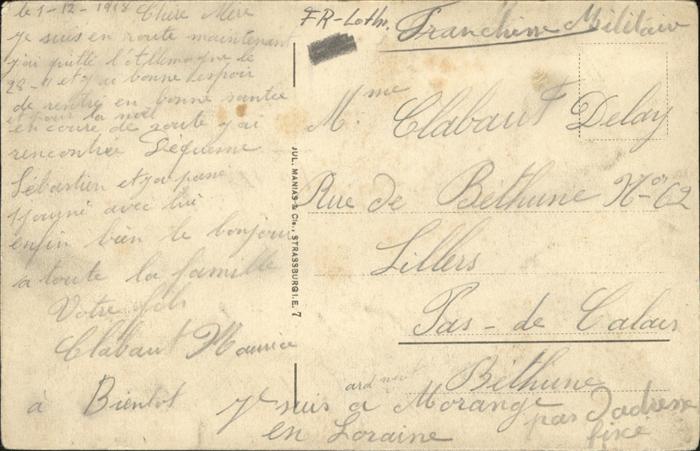 le 1-12-1918 Chère Mère
je suis en route maintenant
j'ai quitté l'Allemagne le
28-11 et j'ai bonne espoir
de rentre en bonne santée
et pour la noël
en coure de route j'ai
rencontrée Lequenne
Sébastien et j'ai passé
1 journé avec lui
enfin bien le bonjour
a toute la famille
Votre fils
Clabaut Maurice
à Bientot
Je suis a Morange
en Loraine
pas d'adresse
fixe
FR-Lothr.
Franchise Militaire
Mme Clabaut Delay
Rue de Bethune No 62
Lillers
Pas-de Calais
Béthune
JUL. MANIAS & Cie., STRASSBURG I. E. 7